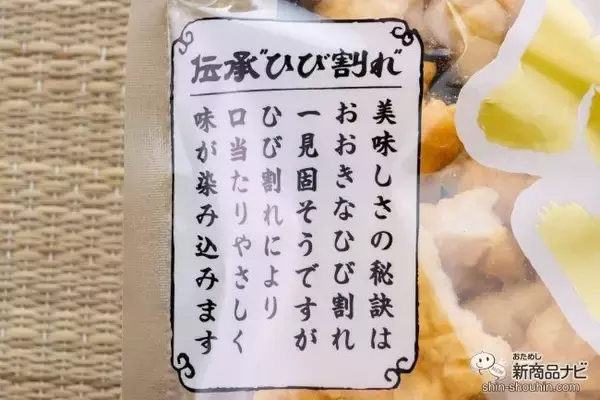 伝承"ひび割れ"
美味しさの秘訣は
おおきなひび割れ
一見固そうですが
ひび割れにより
口当たりやさしく
味が染み込みます
おためし
新商品ナビ
shin-shouhin.com